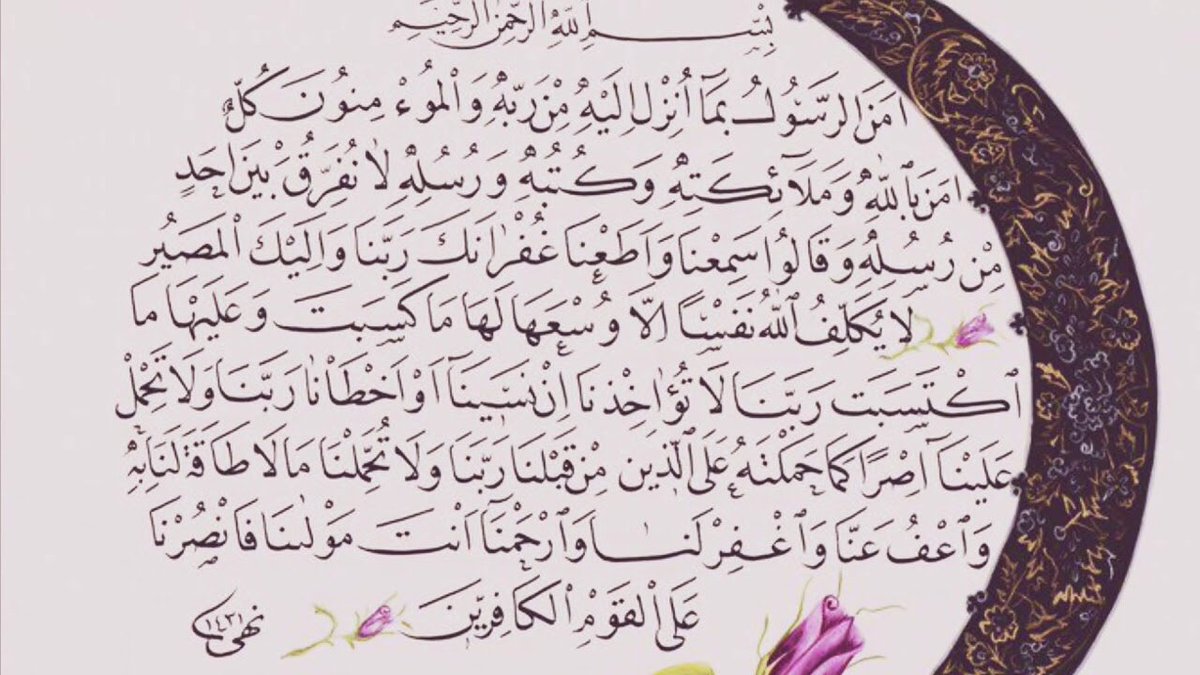 بِسْمِ اللّٰهِ الرَّحْمٰنِ الرَّحِيْمِ
اٰمَنَ الرَّسُوْلُ بِمَٓا اُنْزِلَ اِلَيْهِ مِنْ رَبِّهٖ وَالْمُوءْمِنُونَ كُلٌّ
اٰمَنَ بِاللّٰهِ وَمَلَٓائِكَتِهٖ وَكُتُبِهٖ وَرُسُلِهٖ لَا نُفَرِّقُ بَيْنَ اَحَدٍ
مِنْ رُسُلِهٖ وَقَالُوا سَمِعْنَا وَاَطَعْنَا غُفْرَانَكَ رَبَّنَا وَاِلَيْكَ الْمَصِيْرُ
لَا يُكَلِّفُ اللّٰهُ نَفْسًا اِلَّا وُسْعَهَا لَهَا مَا كَسَبَت وَعَلَيْهَا مَا
ٱكْتَسَبَت رَبَّنَا لَا تُؤَاخِذْنَا اِنْ نَسِيْنَٓا اَوْ اَخْطَاْنَا رَبَّنَا وَلَا تَحْمِلْ
عَلَيْنَٓا اِصْرًا كَمَا حَمَلْتَهُ عَلَى الَّذِينَ مِنْ قَبْلِنَا رَبَّنَا وَلَا تُحَمِّلْنَا مَا لَا طَاقَةَ لَنَا بِهٖ
وَٱعْفُ عَنَّا وَٱغْفِرْ لَنَا وَٱرْحَمْنَٓا اَنْتَ مَوْلٰىنَا فَانْصُرْنَا
عَلَى الْقَوْمِ الْكَافِرِيْنَ
نهى ١٤٣١